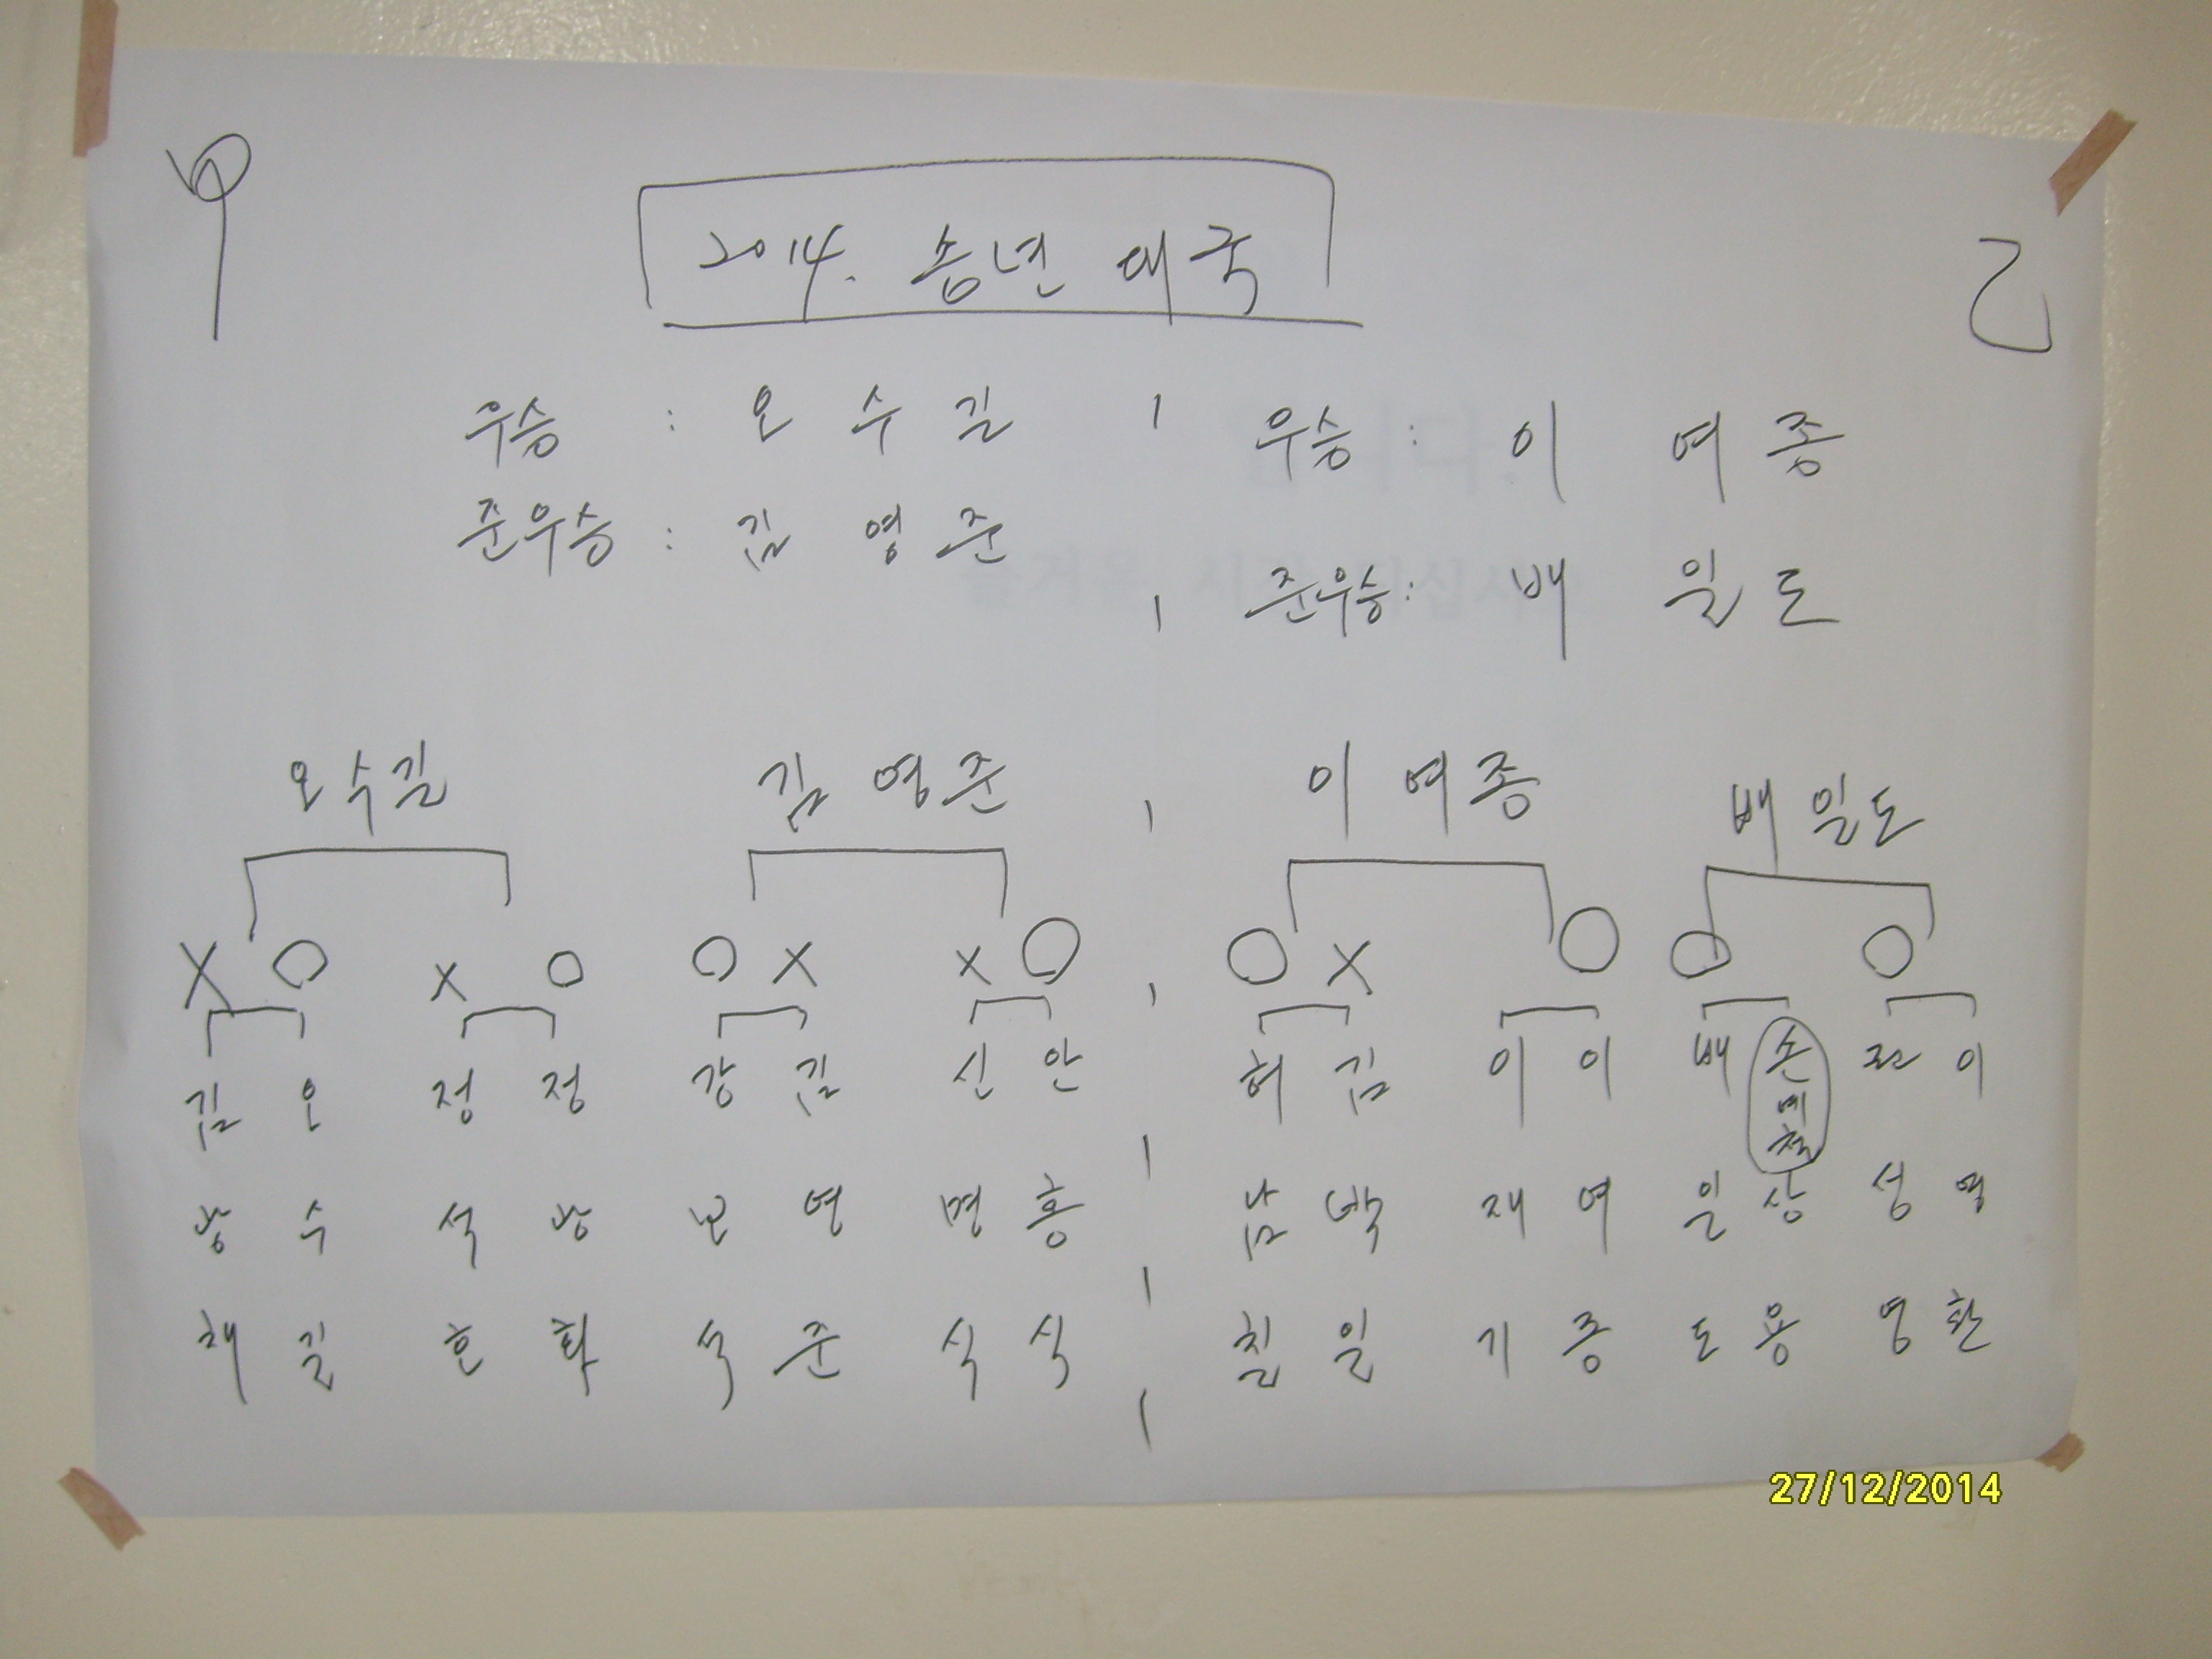 甲
乙
2014. 송년 대국
우승 : 오 수 길
우승 : 이 여 종
준우승 : 김 영 준
준우승 : 배 일 도
오 수 길 김 영 준 이 여 종 배 일 도
X O X O O X X O O X O O O
김 오 정 정 강 김 신 안 허 김 이 이 배 손 전 이
광 수 석 광 연 명 홍 남 박 재 여 일 상 성 영
채 길 흔 확 석 준 식 식 칠 일 기 종 도 용 영 환
27/12/2014